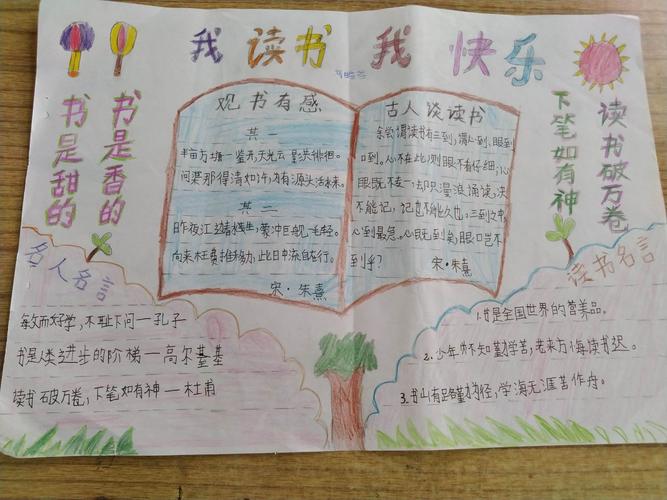 我读书我快乐
书是香的
书是甜的
下笔如有神
读书破万卷
观书有感
其一
半亩方塘一鉴开,天光云影共徘徊。
问渠那得清如许,为有源头活水来。
其二
昨夜江边春水生,蒙冲巨舰一毛轻。
向来枉费推移力,此日中流自在行。
宋·朱熹
古人谈读书
余尝谓读书有三到,谓心到、眼到
口到。心不在此,则眼不看仔细,心
眼既不专一,却只漫浪诵读,决
不能记,记也不能久也。三到之中,
心到最急。心既到矣,眼口岂不
到乎?
宋·朱熹
名人名言
敏而好学,不耻下问—孔子
书是人类进步的阶梯—高尔基
读书破万卷,下笔如有神—杜甫
读书名言
1.书是全国世界的营养品。
2.少年不知勤学苦,老来方悔读书迟。
3.书山有路勤为径,学海无涯苦作舟。